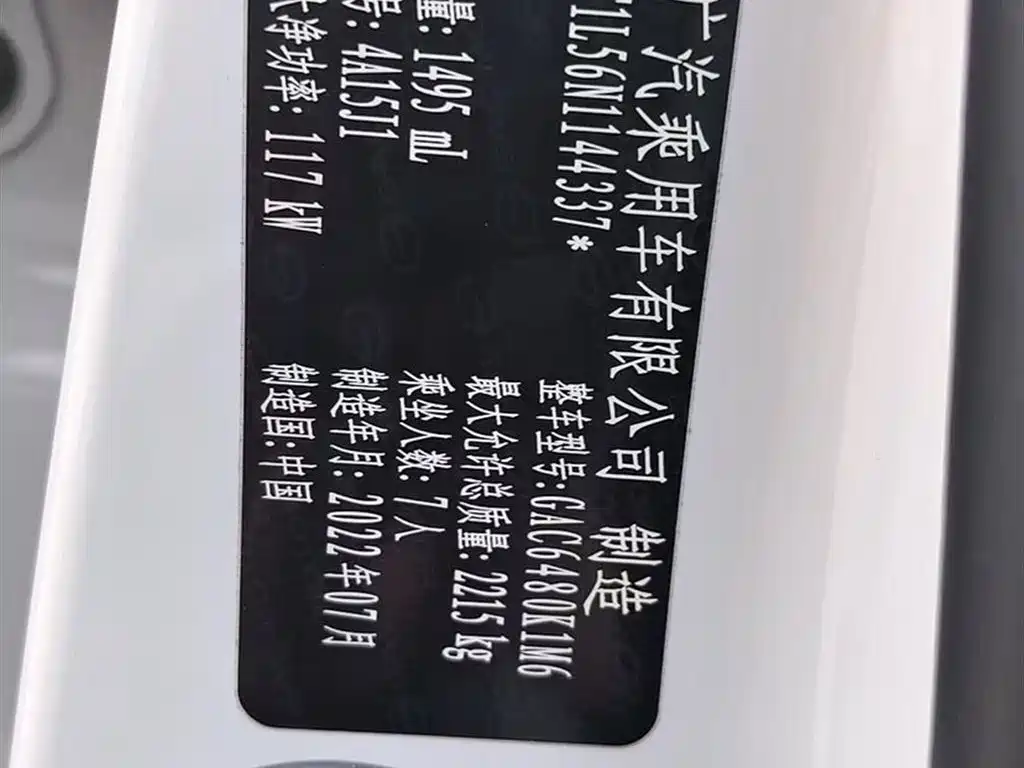 广汽乘用车有限公司 制造
1L56N1144337*
整车型号:GAC6480K1M6
最大允许总质量:2215kg
量:1495 mL
乘坐人数:7人
号:4A15J1
制造年月:2022年07月
大净功率:117 kW
制造国:中国